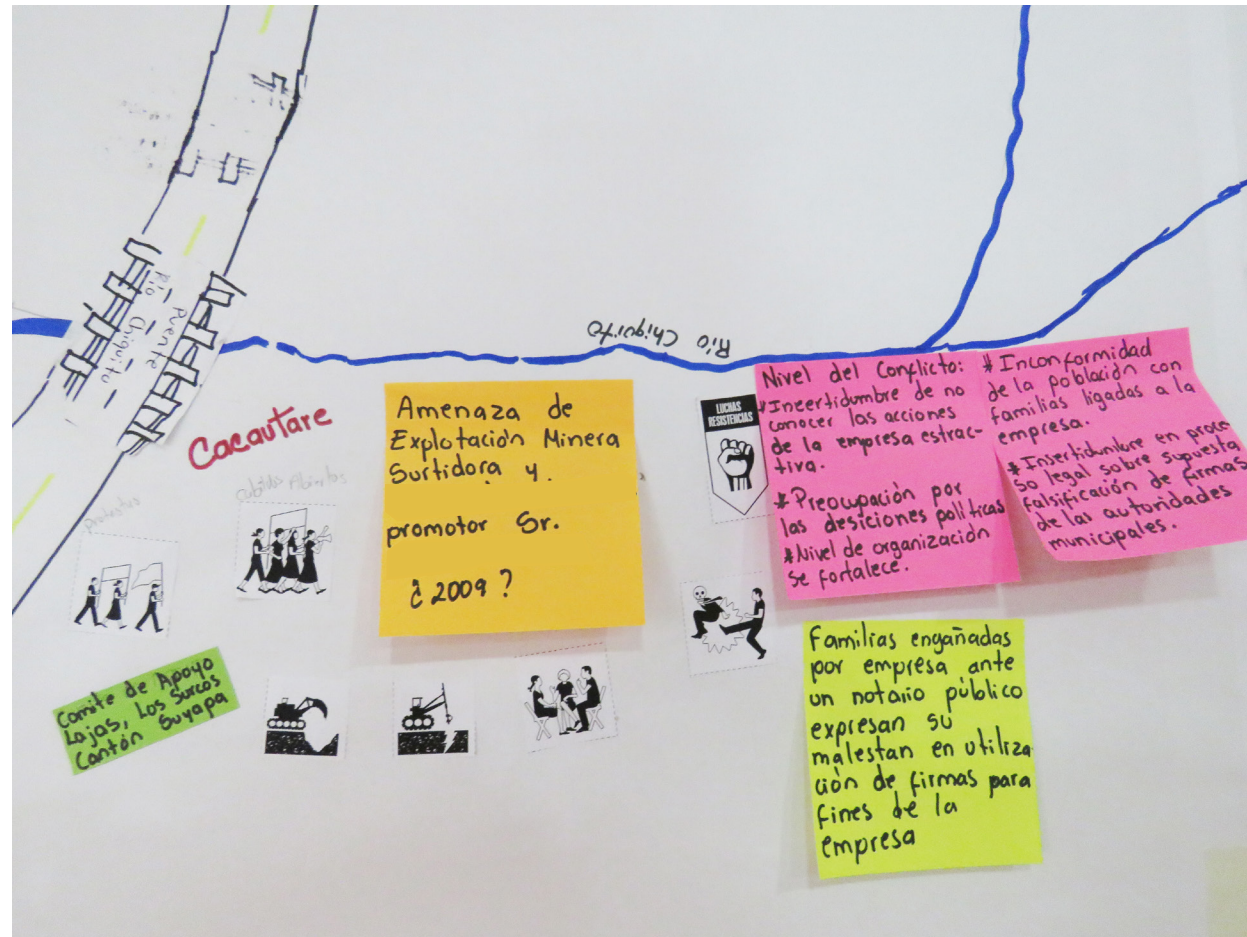 Puente
Río Chiquito
Río Chiquito
Cacautare
protestas
Cabildos Abiertos
Amenaza de
Explotación Minera
Surtidora y
promotor Sr.
¿ 2009 ?
LUCHAS
RESISTENCIAS
Nivel del Conflicto:
*Incertidumbre de no
conocer las acciones
de la empresa estrac-
tiva.
*Preocupación por
las desiciones políticas
*Nivel de organización
se fortalece.
* Inconformidad
de la población con
familias ligadas a la
empresa.
*Insertidumbre en proce-
so legal sobre supuesta
falsificación de firmas
de las autoridades
municipales.
Comite de Apoyo
Lajas, Los Surcos
Cantón Suyapa
Familias engañadas
por empresa ante
un notario público
expresan su
malestan en utiliza
ción de firmas para
fines de la
empresa